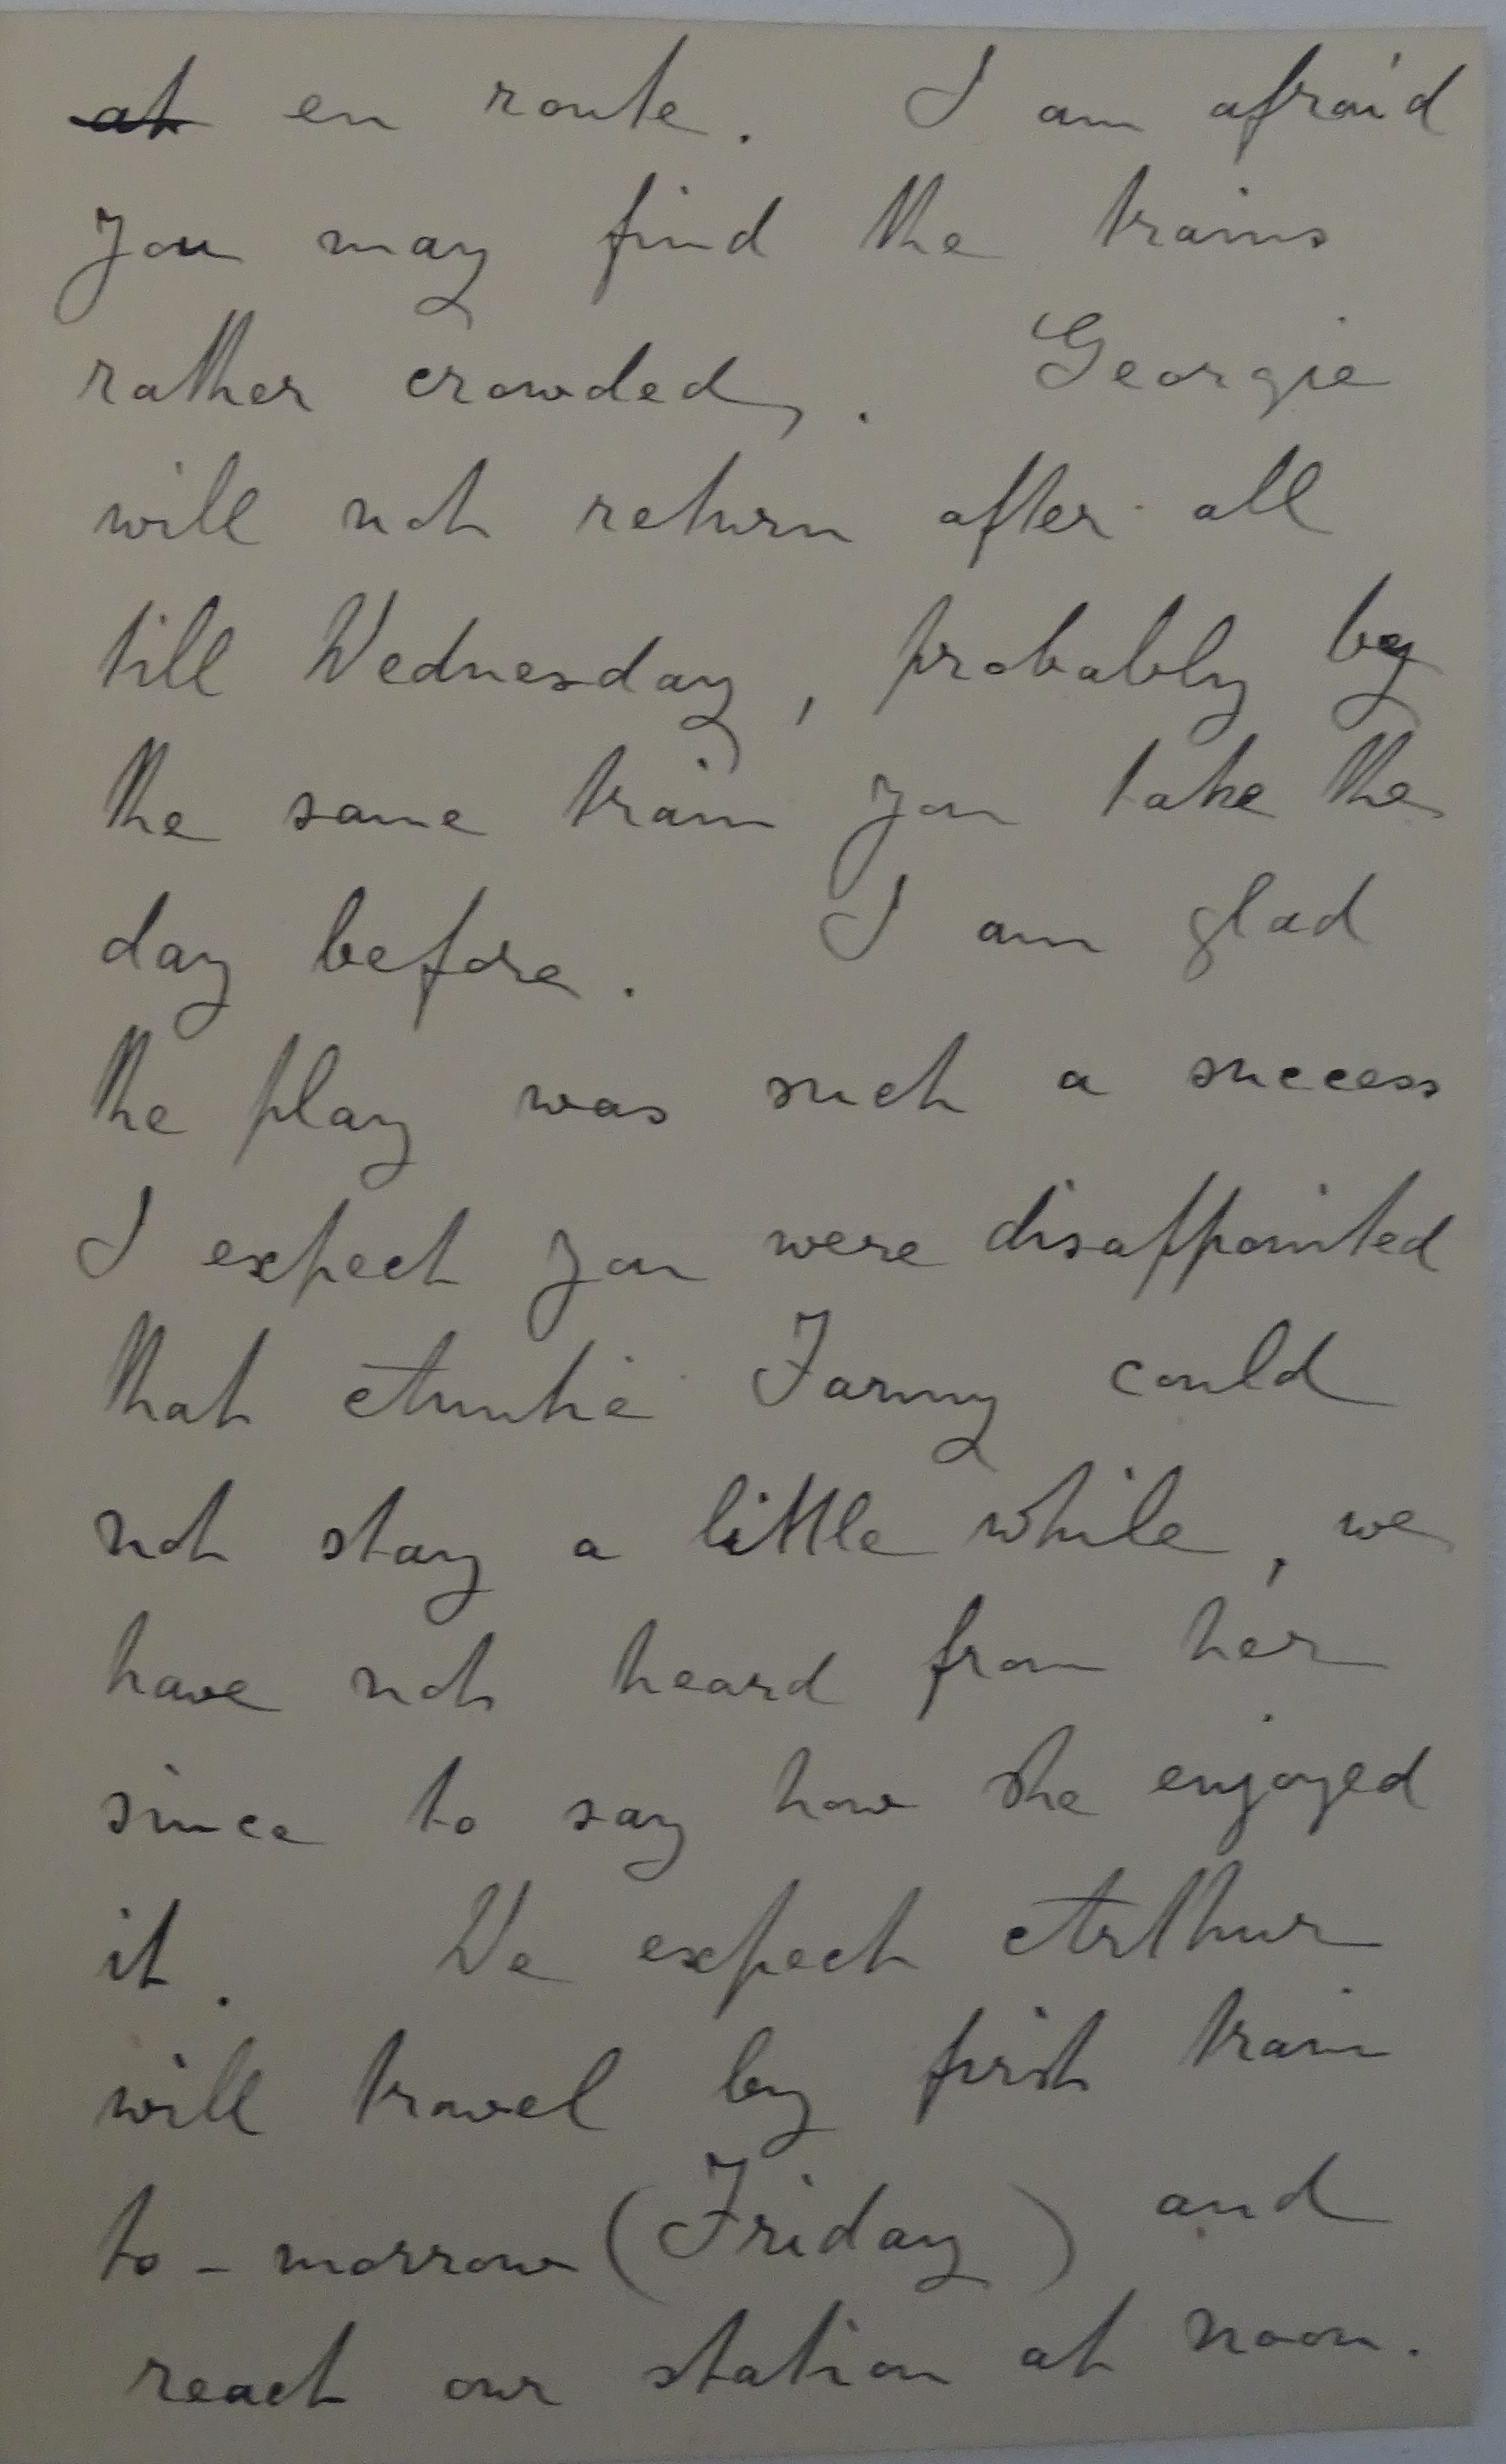 at en route. I am afraid
you may find the trains
rather crowded. Georgie
will not return after all
till Wednesday, probably by
the same train you take the
day before. I am glad
the play was such a success
I expect you were disappointed
that Auntie Fanny could
not stay a little while, we
have not heard from her
since to say how she enjoyed
it. We expect Arthur
will travel by first train
to-morrow (Friday) and
reach our station at noon.